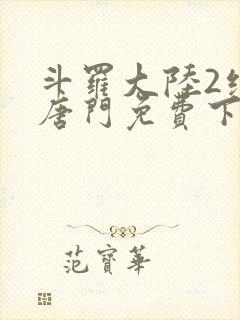 斗羅大陸2
唐門免費下
范寶華